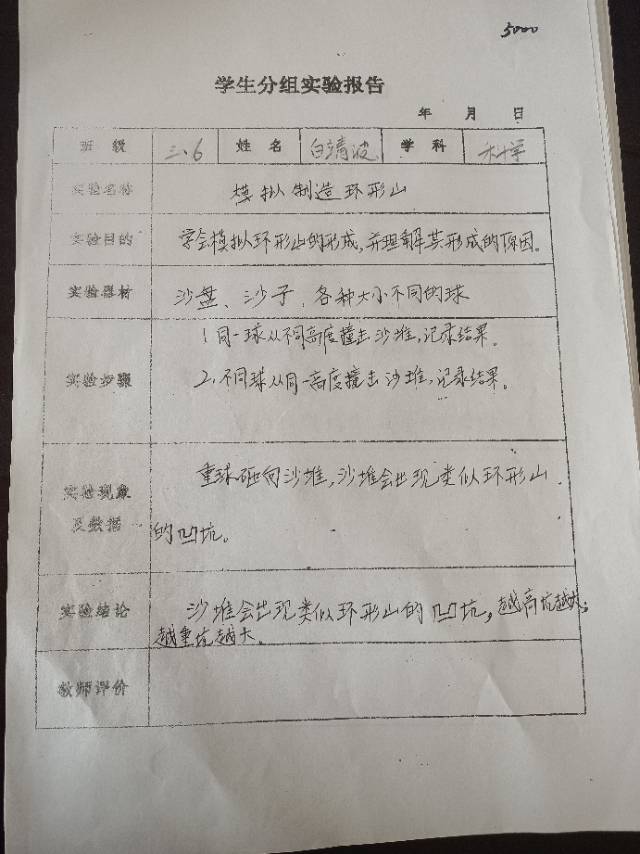 5000
学生分组实验报告
年 月 日
班 级 三.6 姓 名 白靖波 学 科 科学
实验名称 模拟制造环形山
实验目的 学会模拟环形山的形成,并理解其形成的原因。
实验器材 沙盘、沙子、各种大小不同的球
1.同一球从不同高度撞击沙堆,记录结果。
实验步骤 2.不同球从同一高度撞击沙堆,记录结果。
重球砸向沙堆,沙堆会出现类似环形山
实验现象
及数据 的凹坑。
实验结论 沙堆会出现类似环形山的凹坑,越高坑越大;
越重坑越大。
教师评价